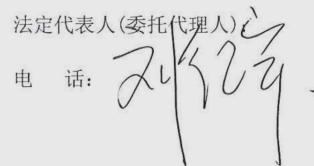 法定代表人(委托代理人):
电 话: